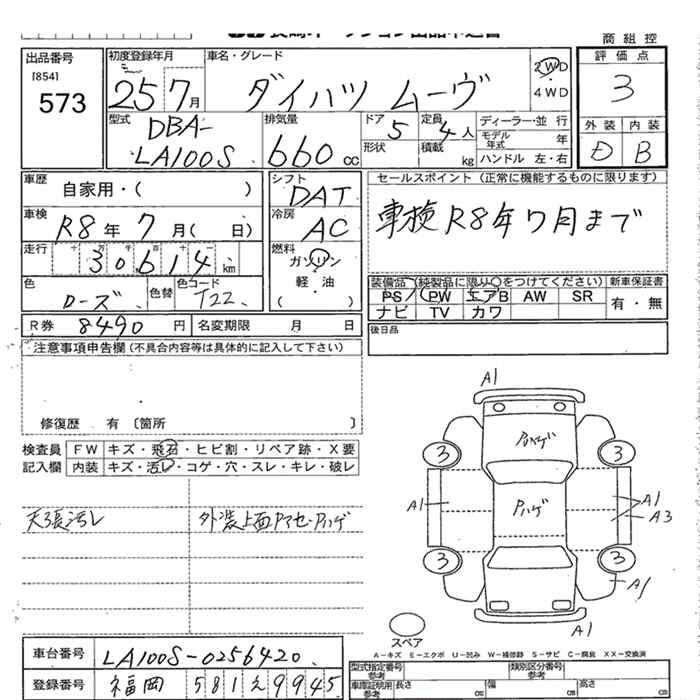 商組控
出品番号 [854] 573
初度登録年月 25 7月
車名・グレード ダイハツ ムーヴ
2WD
4WD
評価点 3
外装 内装
D B
型式 DBA-
LA100S
排気量 660 cc
ドア 5
形状
定員 4人
積載 kg
ディーラー・並行
モデル年式 年
ハンドル 左・右
車歴 自家用・( )
車検 R8年 7月( 日)
走行 十万千百十一
30614 km
色 ローズ
色替
色コード T22
シフト DAT
冷房 AC
燃料 ガソリン
軽・油
( )
セールスポイント (正常に機能するものに限ります)
車検R8年7月まで
装備品 (純製品に限り○をつけてください)
新車保証書
PS PW エアB AW SR
有・無
ナビ TV カワ
R券 8490 円
名変期限 月 日
後日品
注意事項申告欄 (不具合内容等は具体的に記入して下さい)
修復歴 有 〔箇所 〕
検査員
記入欄
FW キズ・飛石・ヒビ割・リペア跡・X要
内装 キズ・汚レ・コゲ・穴・スレ・キレ・破レ
天張汚レ
外装上面Pアセ・Pハゲ
A1
Pハゲ
3 3
A1
Pハゲ
A1
A3
3 3
A1
A1
スペア
A−キズ E−エクボ U−凹み W−補修跡 S−サビ C−腐食 XX−交換済
車台番号 LA100S-0256420
登録番号 福岡 581 え 9945
型式指定番号
参考
類別区分番号
参考
車庫証明用
参考
長さ cm
幅 cm
高さ cm